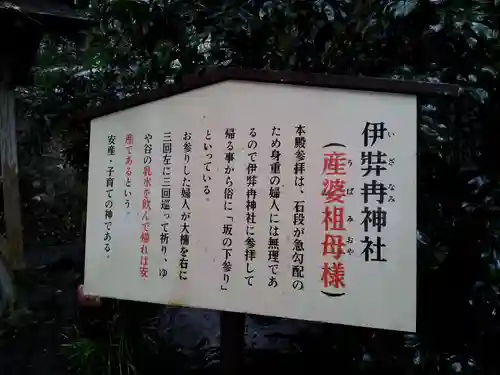 伊弉冉神社
いざなみ
(産婆祖母様)
うばみおや
本殿参拝は、石段が急勾配の
ため身重の婦人には無理であ
るので伊弉冉神社に参拝して
帰る事から俗に「坂の下参り」
といっている。
お参りした婦人が大楠を右に
三回左に三回巡って祈り、ゆ
や谷の乳水を飲んで帰れば安
産であるという。
安産・子育ての神である。